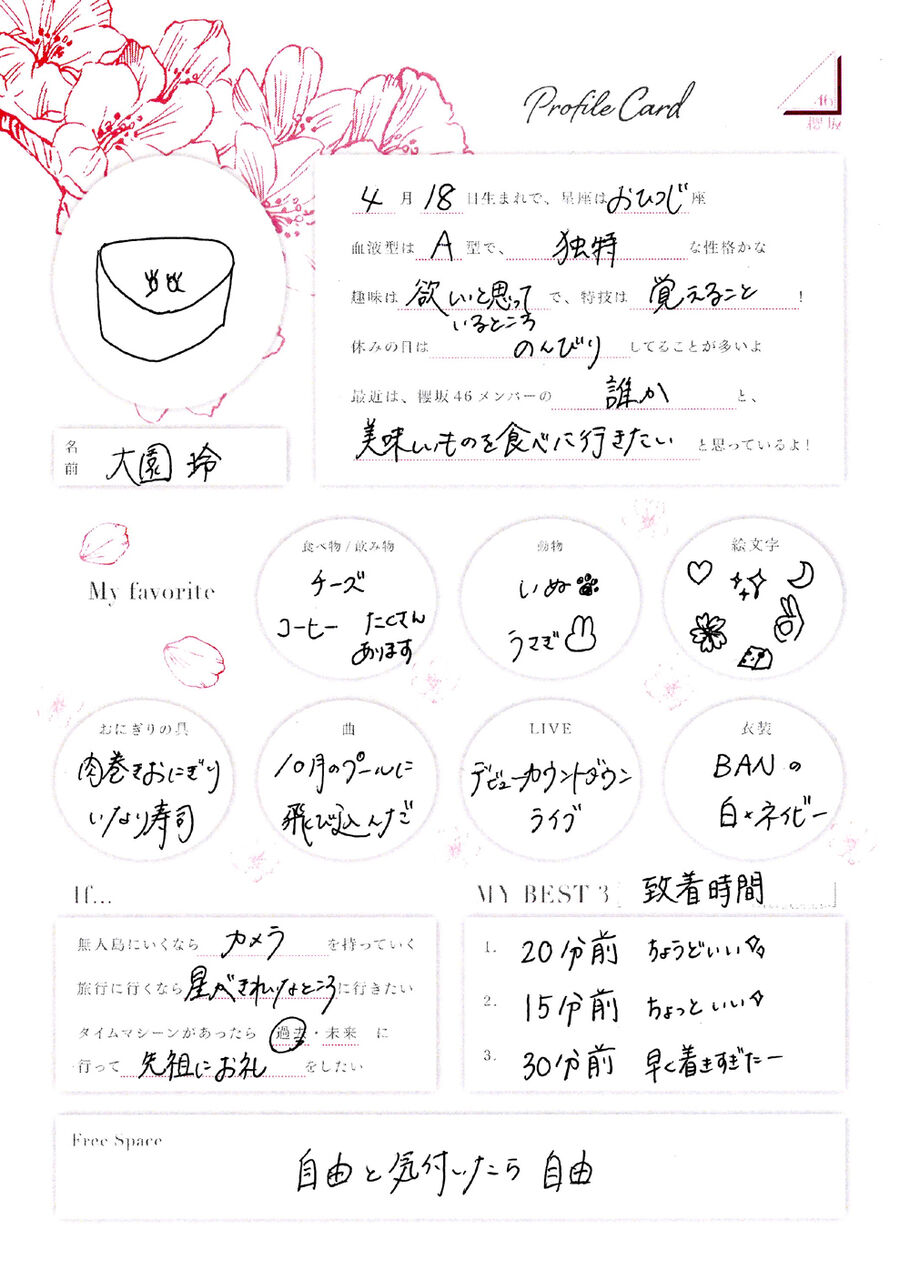 Profile Card
46
櫻坂
4月18日生まれで、星座はおひつじ座
血液型はA型で、独特な性格かな
趣味は欲しいと思っているところで、特技は覚えること！
休みの日はのんびりしてることが多いよ
最近は、櫻坂46メンバーの誰かと、
美味しいものを食べに行きたいと思っているよ！
名前 大園 玲
My favorite
食べ物 / 飲み物
チーズ
コーヒー たくさん
あります
動物
いぬ
うさぎ
絵文字
おにぎりの具
肉巻きおにぎり
いなり寿司
曲
10月のプールに
飛び込んだ
LIVE
デビューカウントダウン
ライブ
衣装
BANの
白×ネイビー
If...
無人島にいくならカメラを持っていく
旅行に行くなら星がきれいなところに行きたい
タイムマシーンがあったら 過去・未来 に
行って先祖にお礼をしたい
MY BEST 3 致着時間
1. 20分前 ちょうどいい
2. 15分前 ちょっといい
3. 30分前 早く着きすぎたー
Free Space
自由と気付いたら自由